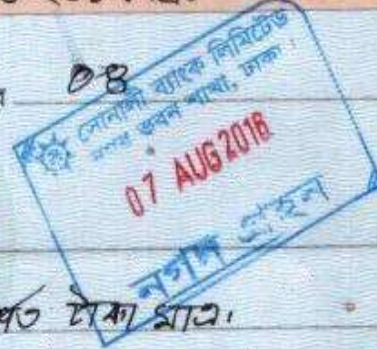 ০৪
সোনালী ব্যাংক লিমিটেড
নগর ভবন শাখা, ঢাকা।
07 AUG 2016
নগদ গ্রহন
শত টাকা মাত্র।